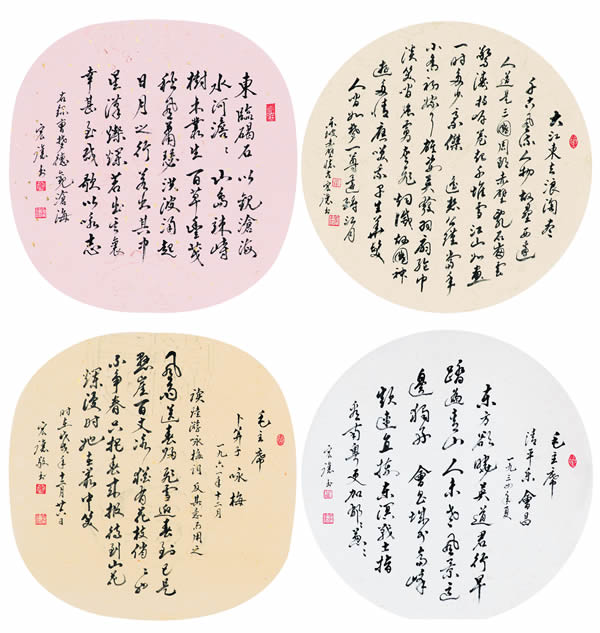 東臨碣石以觀滄海
水何澹〻山島竦峙
樹木叢生百草豐茂
秋風蕭瑟洪波涌起
日月之行若出其中
星漢燦爛若出其裏
幸甚至哉歌以咏志
右錄曹孟德觀滄海
書
大江東去浪淘盡
千古風流人物故壘西邊
人道是三國周郎赤壁亂石崩雲
驚濤拍岸卷起千堆雪江山如畫
一時多少豪傑遙想公瑾當年
小喬初嫁了雄姿英發羽扇綸巾
談笑間檣櫓灰飛烟滅故國神
遊多情應笑我早生華髮
人間如夢一尊還酹江月
東坡赤壁懷古
毛主席
卜算子 咏梅
一九六一年十二月
讀陸游咏梅詞反其意而用之
風雨送春歸飛雪迎春到已是
懸崖百丈冰猶有花枝俏〻也
不爭春只把春來報待到山花
爛漫時她在叢中笑
時在戊戌年十二月廿八日
敬書
毛主席
清平樂 會昌
一九三四年夏
東方欲曉莫道君行早
踏遍青山人未老風景這
邊獨好 會昌城外高峰
顛連直接東溟戰士指
看南粵更加鬱葱〻
書